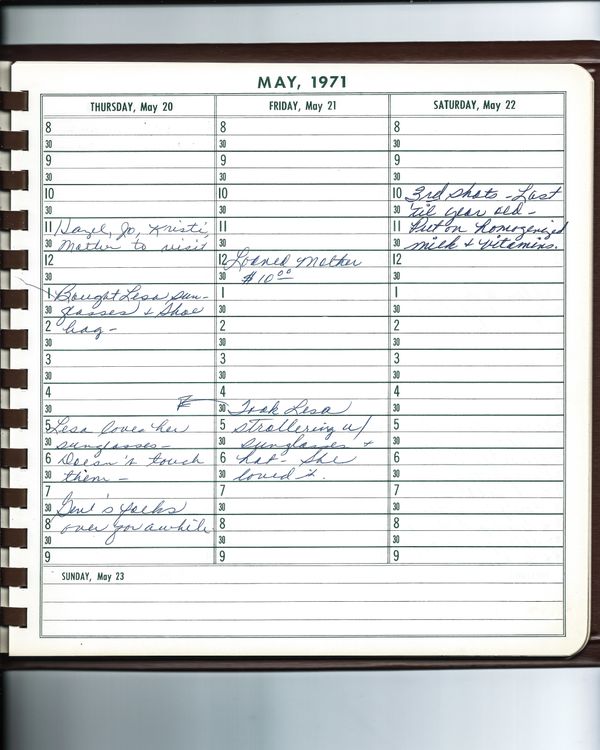 MAY, 1971
THURSDAY, May 20
8
30
9
30
10
30
11 Hazel, Jo, Kristi,
30 Mother to visit
12
30
1 Bought Lesa sun-
30 glasses + Shoe
2 bag -
30
3
30
4
30
5 Lesa loves her
30 sunglasses -
6 Doesn't touch
30 them -
7
30 Gene's folks
8 over for awhile.
30
9
FRIDAY, May 21
8
30
9
30
10
30
11
30
12 Loaned Mother
30 $10.00
1
30
2
30
3
30
4
30 Took Lesa
5 strollering w/
30 sunglasses +
6 hat - She
30 loved it.
7
30
8
30
9
SATURDAY, May 22
8
30
9
30
10 3rd shots - Last
30 'til year old -
11 Put on homogenized
30 milk + vitamins.
12
30
1
30
2
30
3
30
4
30
5
30
6
30
7
30
8
30
9
SUNDAY, May 23